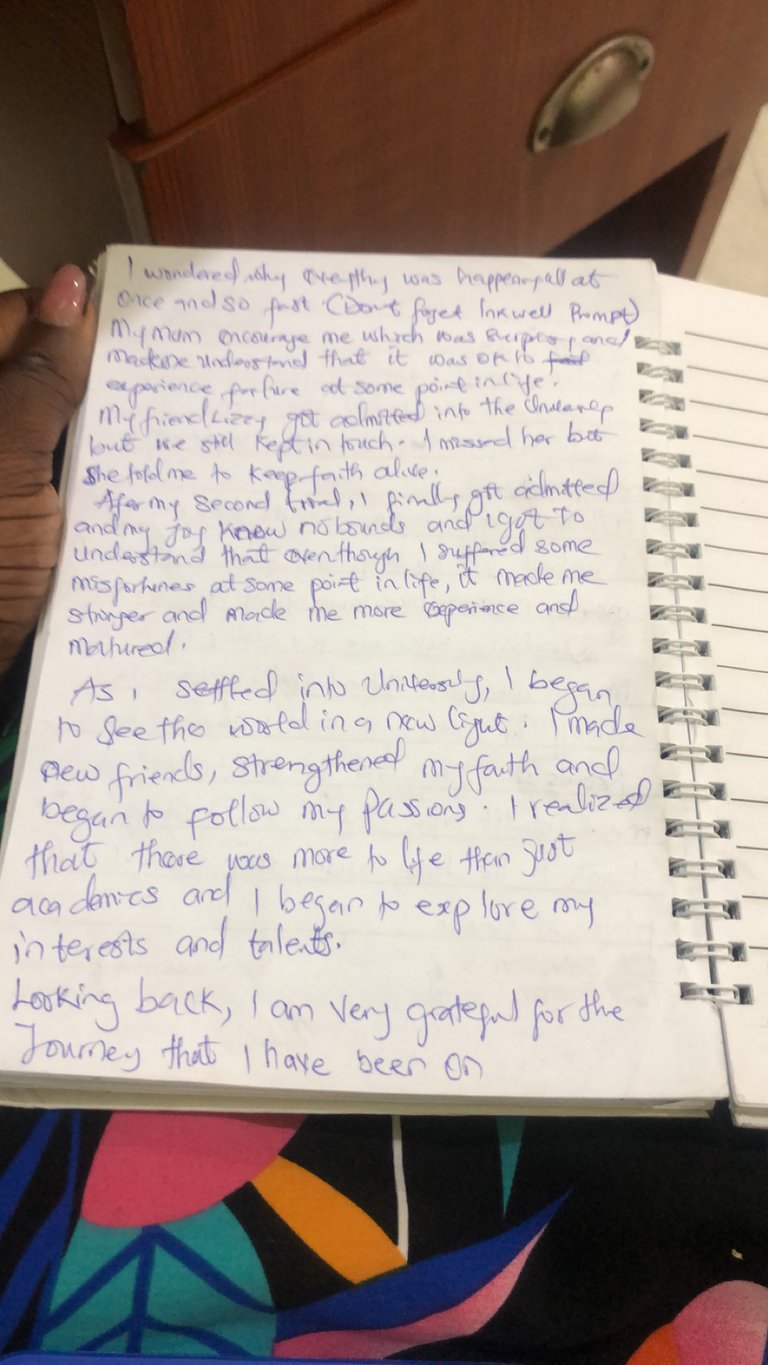 I wondered why everything was happening all at
once and so fast (Don't forget Inkwell Prompt)
My mum encourage me which was and
made me understand that it was ok to
experience failure at some point in life.
My friend Lizzy got admitted into the University
but we still kept in touch. I missed her but
she told me to keep faith alive.
After my second trial, I finally got admitted
and my joy know no bounds and I got to
understand that even though I suffered some
misfortunes at some point in life, it made me
stronger and made me more experience and
matured.
As I settled into University, I began
to see the world in a new light. I made
new friends, strengthened my faith and
began to follow my passions. I realized
that there was more to life than just
academics and I began to explore my
interests and talents.
Looking back, I am very grateful for the
Journey that I have been on